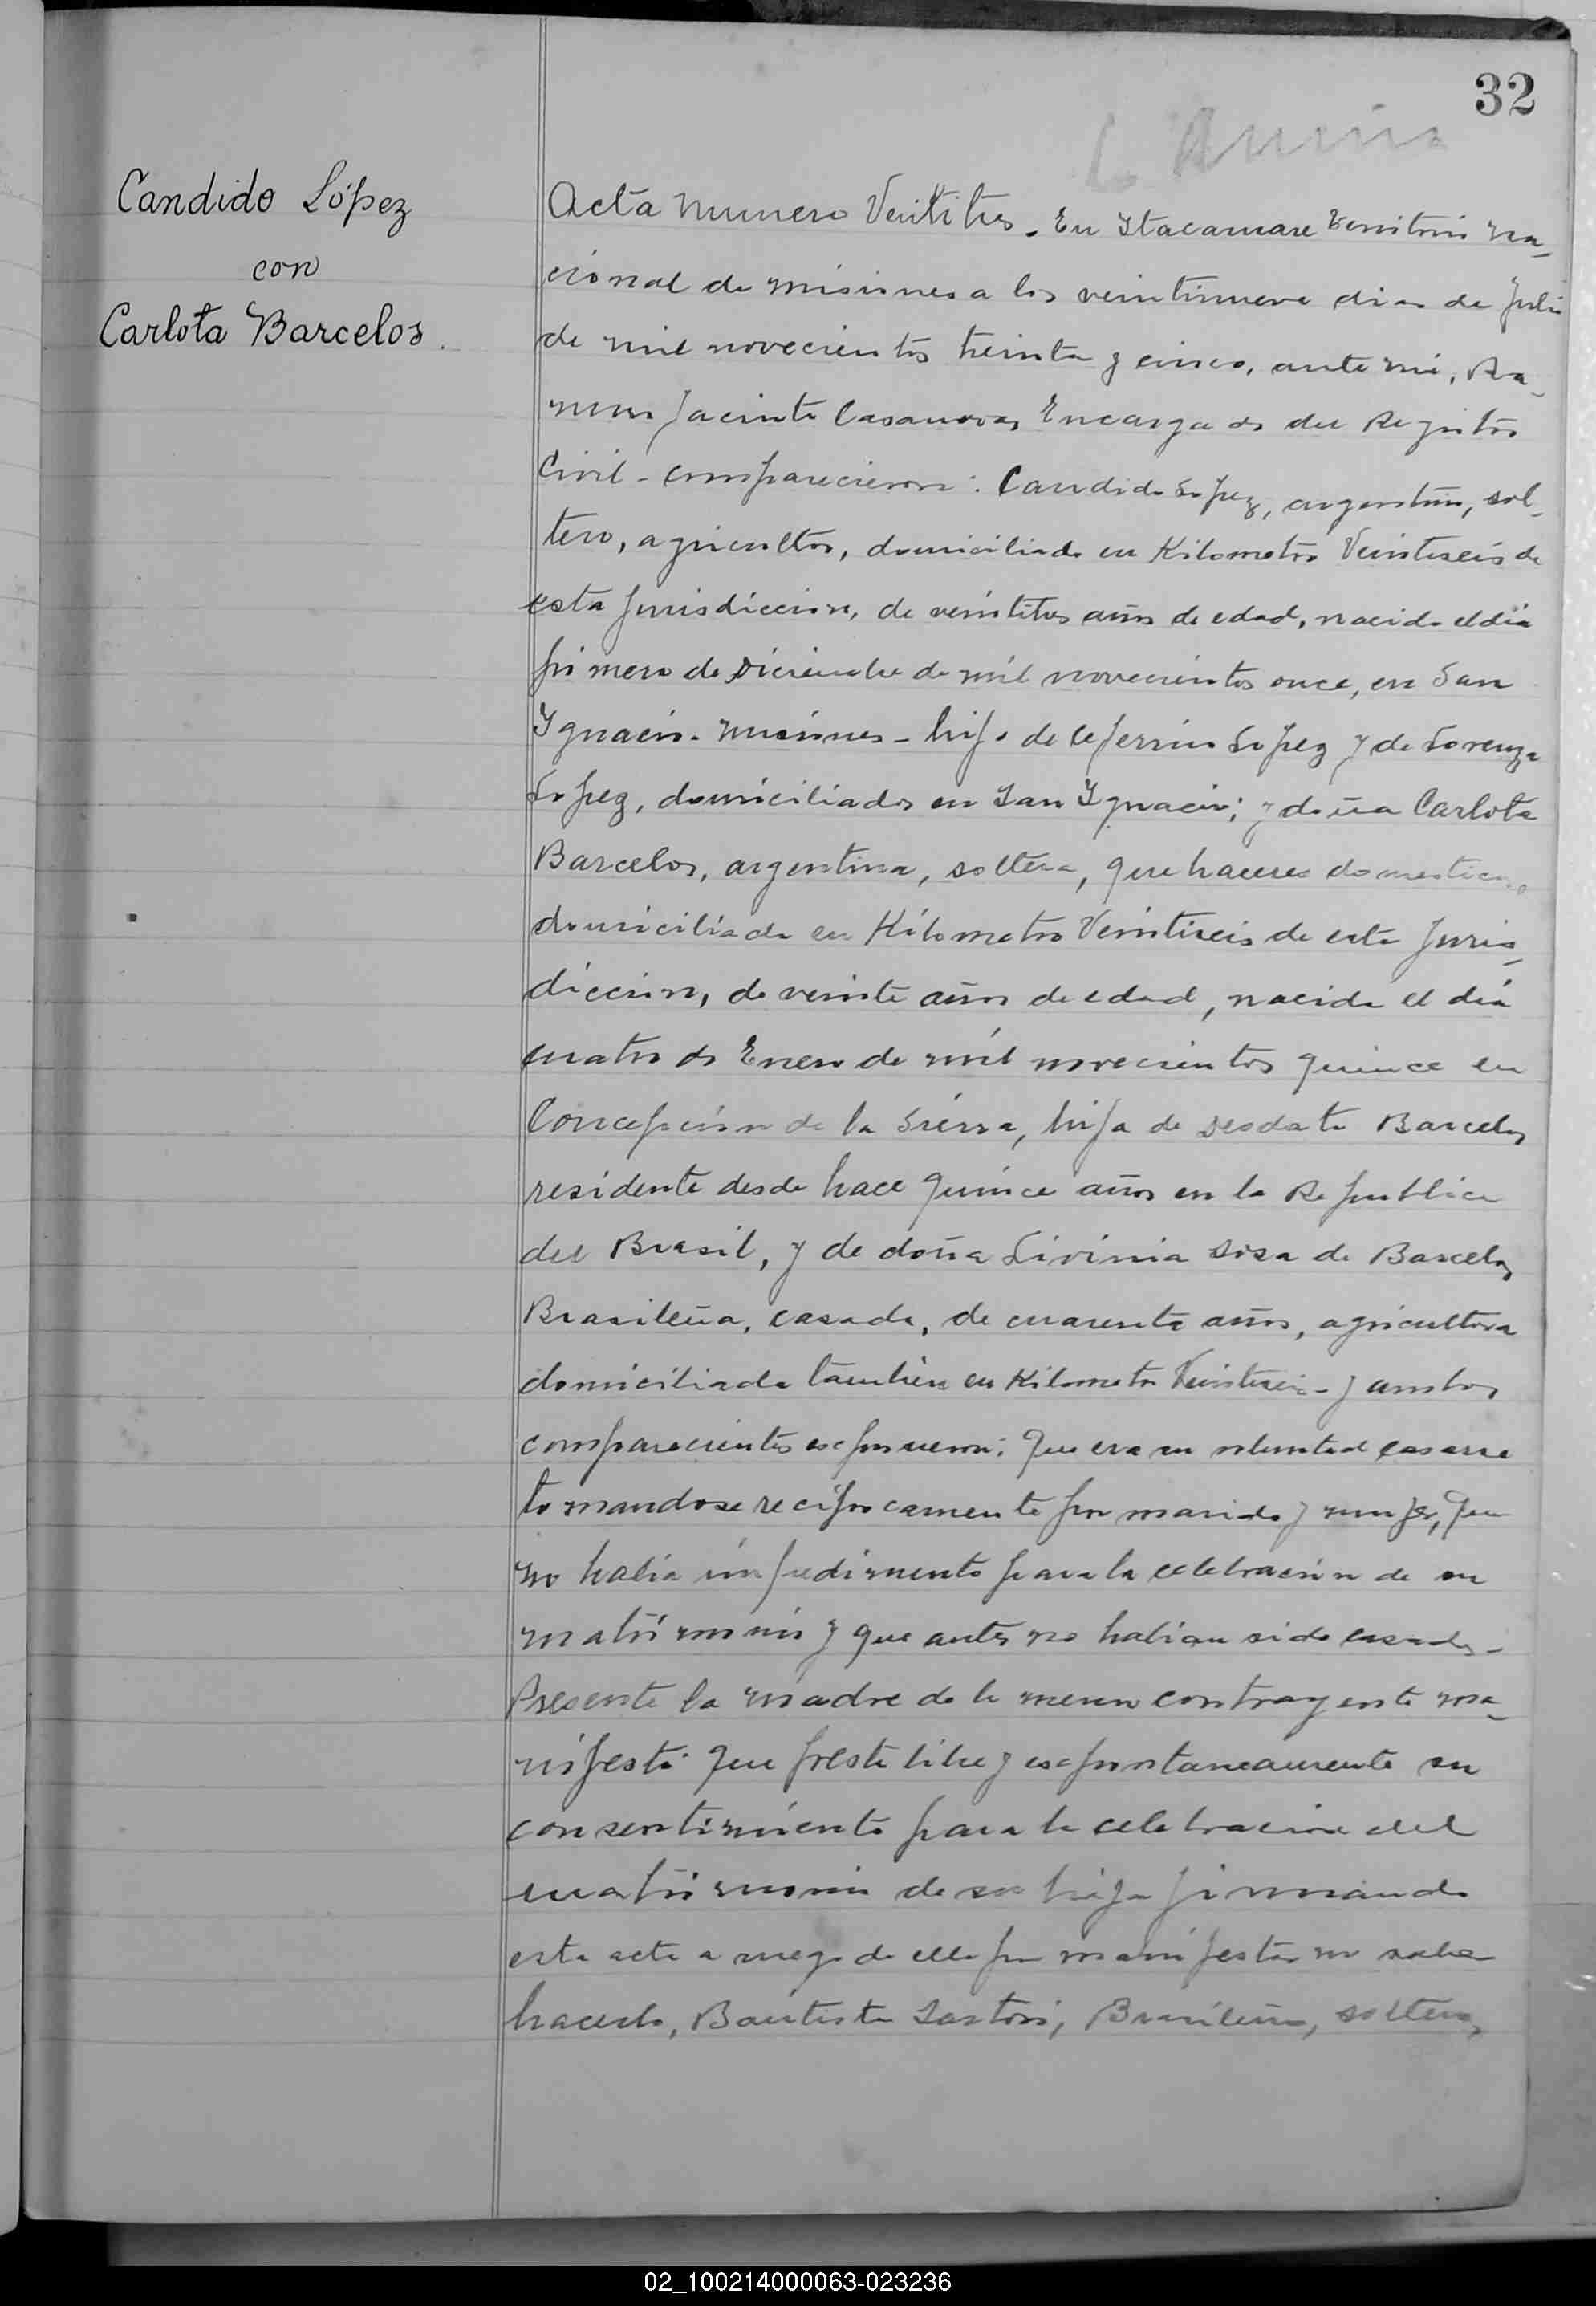 32
Candido López
con
Carlota Barcelos.
Acta numero Veititres. En Itacaruare territorio na-
cional de misiones a los veintinueve dias de Julio
de mil novecientos treinta y cinco, ante mi, Ra-
mon Jacinto Casanova, Encargado del Registro
Civil - comparecieron: Candido Lopez, argentino, sol-
tero, agricultor, domiciliado en Kilometro Veintiseis de
esta Jurisdiccion, de veintitres años de edad, nacido el dia
primero de Diciembre de mil novecientos once, en San
Ygnacio - misiones - hijo de Ceferino Lopez y de Lorenza
Lopez, domiciliados en San Ygnacio; y doña Carlota
Barcelos, argentina, soltera, quehaceres domesticos
domiciliada en Kilometro Veintiseis de esta Juris-
diccion, de veinte años de edad, nacida el dia
cuatro de Enero de mil novecientos quince en
Concepcion de la Sierra, hija de Deodato Barcelos
residente desde hace quince años en la Republica
del Brasil, y de doña Livinia Sosa de Barcelos
Brasileña, casada, de cuarenta años, agricultora
domiciliada tambien en Kilometro Veintiseis - y ambos
comparecientes espusieron: Que era su voluntad casarse
tomandose reciprocamente por marido y mujer, que
no habia impedimento para la celebracion de su
matrimonio y que antes no habian sido casados -
Presente la madre de la menor contrayente ma-
nifestó que presta libre y espontaneamente su
consentimiento para la celebracion del
matrimonio de su hija firmando
esta acta a ruego de ella por manifestar no saber
hacerlo, Bautista Sartori, Brasileño, soltero,
02_100214000063-023236